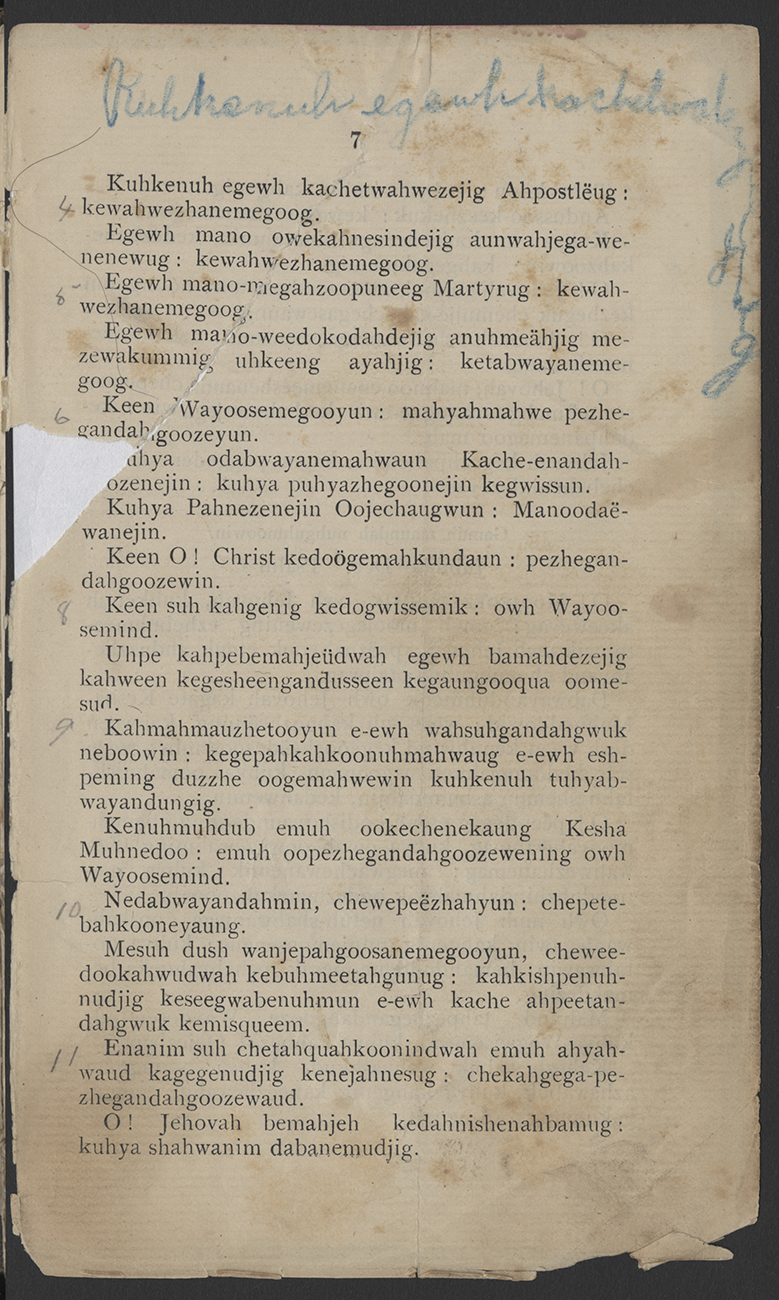 Kuhkenuh egawh kachetwah
7
Kuhkenuh egewh kachetwahwezejig Ahpostlëug :
4 kewahwezhanemegoog.
Egewh mano owekahnesindejig aunwahjega-we-
nenewug : kewahwezhanemegoog.
Egewh mano-megahzoopuneeg Martyrug : kewah-
wezhanemegoog.
Egewh mano-weedokodahdejig anuhmeähjig me-
zewakummig uhkeeng ayahjig : ketabwayaneme-
goog.
6 Keen Wayoosemegooyun : mahyahmahwe pezhe-
gandahgoozeyun.
odabwayanemahwaun Kache-enandah-
ozenejin : kuhya puhyazhegoonejin kegwissun.
Kuhya Pahnezenejin Oojechaugwun : Manoodaë-
wanejin.
Keen O ! Christ kedoögemahkundaun : pezhegan-
dahgoozewin.
8 Keen suh kahgenig kedogwissemik : owh Wayoo-
semind.
Uhpe kahpebemahjeüdwah egewh bamahdezejig
kahween kegesheengandusseen kegaungooqua oome-
sud.
9 Kahmahmauzhetooyun e-ewh wahsuhgandahgwuk
neboowin : kegepahkahkoonuhmahwaug e-ewh esh-
peming duzzhe oogemahwewin kuhkenuh tuhyab-
wayandungig.
Kenuhmuhdub emuh ookechenekaung Kesha
Muhnedoo : emuh oopezhegandahgoozewening owh
Wayoosemind.
10 Nedabwayandahmin, chewepeëzhahyun : chepete-
bahkooneyaung.
Mesuh dush wanjepahgoosanemegooyun, chewee-
dookahwudwah kebuhmeetahgunug : kahkishpenuh-
nudjig keseegwabenuhmun e-ewh kache ahpeetan-
dahgwuk kemisqueem.
11 Enanim suh chetahquahkoonindwah emuh ahyah-
waud kagegenudjig kenejahnesug : chekahgega-pe-
zhegandahgoozewaud.
O ! Jehovah bemahjeh kedahnishenahbamug :
kuhya shahwanim dabanemudjig.